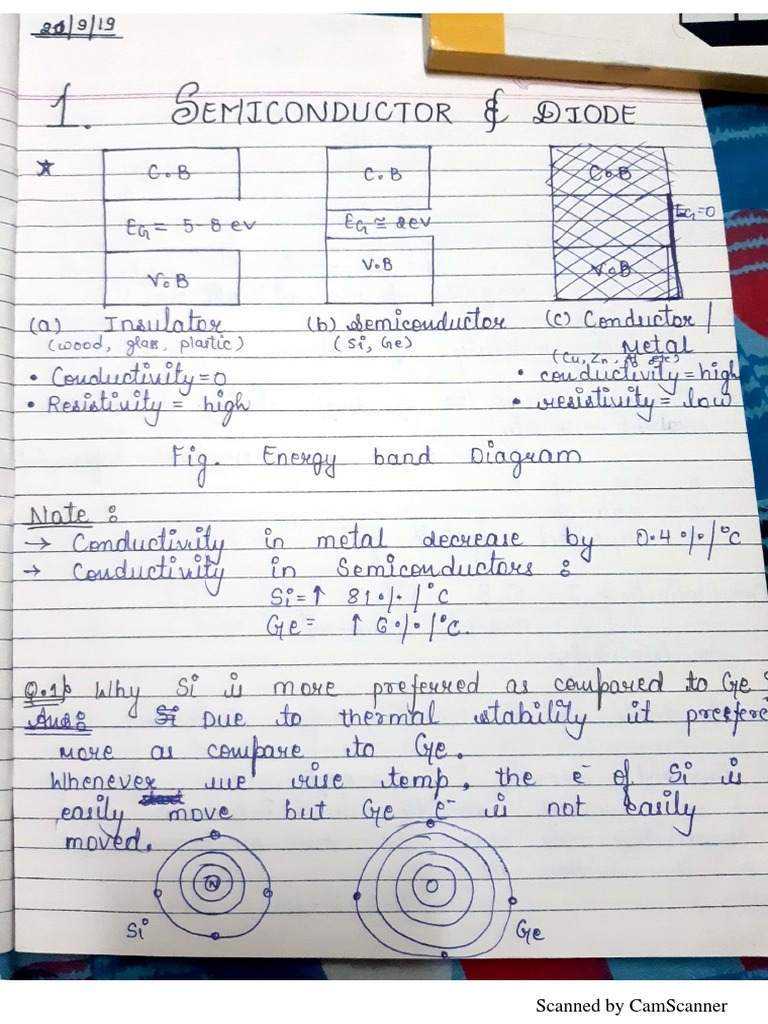 20/9/19
1. SEMICONDUCTOR & DIODE
C.B C.B C.B
EG = 5-8 ev EG ≅ 2ev EG=0
V.B V.B V.B
(a) Insulator (b) Semiconductor (c) Conductor /
(wood, glass, plastic) (Si, Ge) Metal
(Cu, Zn, Al etc)
• Conductivity = 0 • conductivity = high
• Resistivity = high • resistivity = low
Fig. Energy band Diagram
Note :
→ Conductivity in metal decrease by 0.4%/°C
→ Conductivity in Semiconductors :
Si = ↑ 81%/°C
Ge = ↑ 6%/°C.
Q.1) Why Si is more preferred as compared to Ge :
Ans: Due to thermal stability it prefere
more as compare to Ge.
Whenever we rise temp, the e⁻ of Si is
easily move but Ge e⁻ is not easily
moved.
N
Si Ge
Scanned by CamScanner